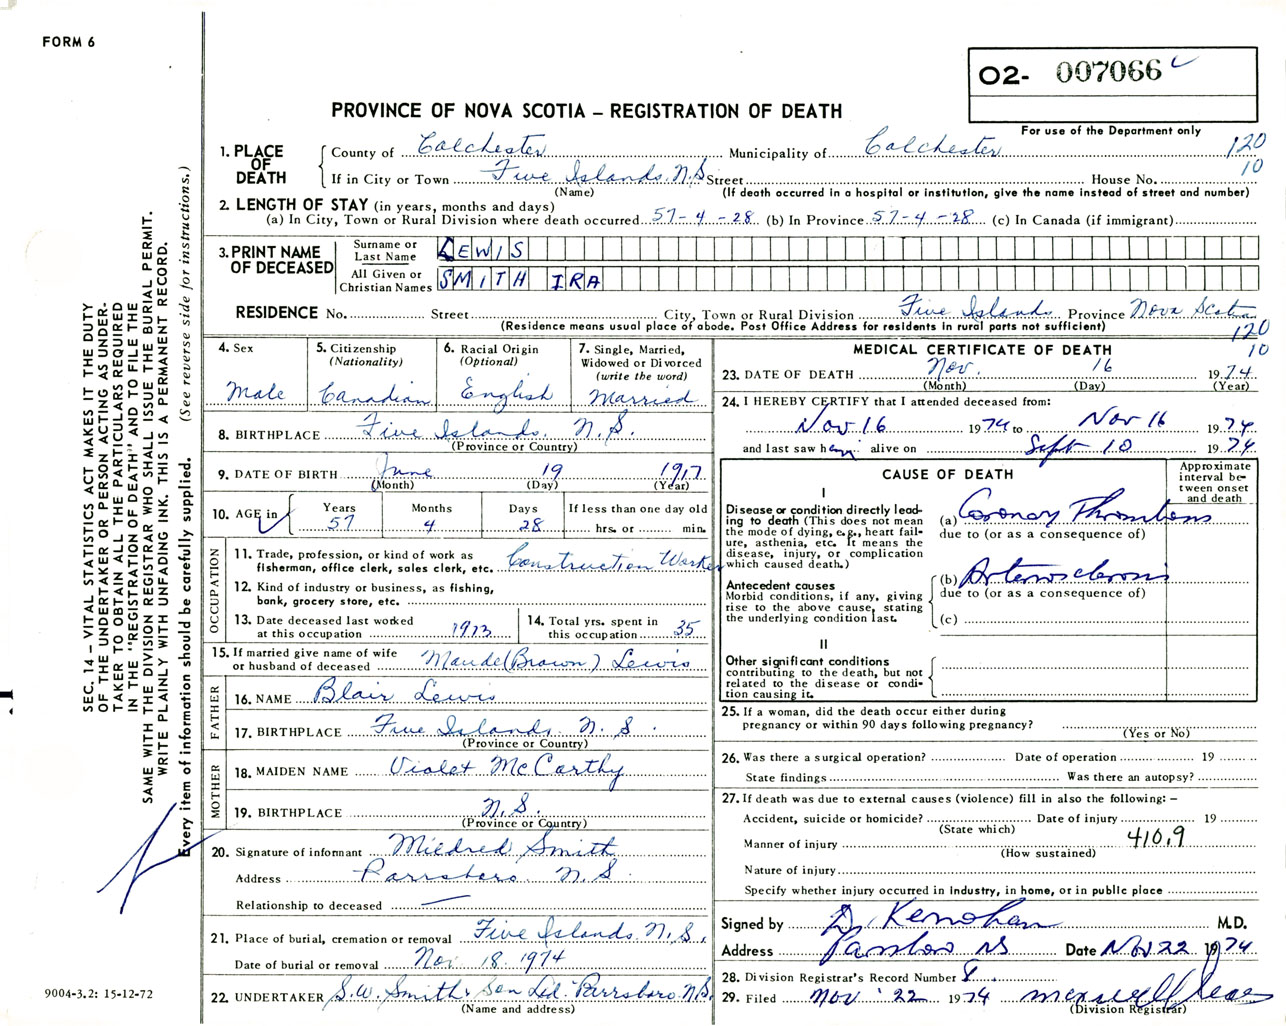 FORM 6
O2- 007066
For use of the Department only
PROVINCE OF NOVA SCOTIA – REGISTRATION OF DEATH
SEC. 14 – VITAL STATISTICS ACT MAKES IT THE DUTY
OF THE UNDERTAKER OR PERSON ACTING AS UNDER-
TAKER TO OBTAIN ALL THE PARTICULARS REQUIRED
IN THE "REGISTRATION OF DEATH" AND TO FILE THE
SAME WITH THE DIVISION REGISTRAR WHO SHALL ISSUE THE BURIAL PERMIT.
WRITE PLAINLY WITH UNFADING INK. THIS IS A PERMANENT RECORD.
Every item of information should be carefully supplied. (See reverse side for instructions.)
1. PLACE OF DEATH
County of Colchester Municipality of Colchester 120
If in City or Town Five Islands. N.S Street House No. 10
(Name) (If death occurred in a hospital or institution, give the name instead of street and number)
2. LENGTH OF STAY (in years, months and days)
(a) In City, Town or Rural Division where death occurred 57-4-28 (b) In Province 57-4-28 (c) In Canada (if immigrant)
3. PRINT NAME OF DECEASED
Surname or Last Name LEWIS
All Given or Christian Names SMITH IRA
RESIDENCE No. Street City, Town or Rural Division Five Islands Province Nova Scotia
(Residence means usual place of abode. Post Office Address for residents in rural parts not sufficient) 120
10
4. Sex
Male
5. Citizenship
(Nationality)
Canadian
6. Racial Origin
(Optional)
English
7. Single, Married,
Widowed or Divorced
(write the word)
Married
8. BIRTHPLACE Five Islands. N.S.
(Province or Country)
9. DATE OF BIRTH June 19 1917
(Month) (Day) (Year)
10. AGE in Years Months Days If less than one day old
57 4 28 hrs. or min.
OCCUPATION
11. Trade, profession, or kind of work as
fisherman, office clerk, sales clerk, etc. Construction Worker
12. Kind of industry or business, as fishing,
bank, grocery store, etc.
13. Date deceased last worked
at this occupation 1973
14. Total yrs. spent in
this occupation 35
15. If married give name of wife
or husband of deceased Maude (Brown) Lewis
FATHER
16. NAME Blair Lewis
17. BIRTHPLACE Five Islands. N.S.
(Province or Country)
MOTHER
18. MAIDEN NAME Violet McCarthy
19. BIRTHPLACE N.S.
(Province or Country)
20. Signature of informant Mildred Smith
Address Parrsboro N.S.
Relationship to deceased —
21. Place of burial, cremation or removal Five Islands, N.S.,
Date of burial or removal Nov. 18. 1974
22. UNDERTAKER S.W. Smith & Son Ltd. Parrsboro N.S.
(Name and address)
MEDICAL CERTIFICATE OF DEATH
23. DATE OF DEATH Nov. 16 1974
(Month) (Day) (Year)
24. I HEREBY CERTIFY that I attended deceased from:
Nov 16 1974 to Nov 16 1974
and last saw him alive on Sept 10 1974
CAUSE OF DEATH
Approximate
interval be-
tween onset
and death
I
Disease or condition directly lead-
ing to death (This does not mean
the mode of dying, e.g., heart fail-
ure, asthenia, etc. It means the
disease, injury, or complication
which caused death.)
(a) Coronary Thrombosis
due to (or as a consequence of)
Antecedent causes
Morbid conditions, if any, giving
rise to the above cause, stating
the underlying condition last.
(b) Arteriosclerosis
due to (or as a consequence of)
(c)
II
Other significant conditions
contributing to the death, but not
related to the disease or condi-
tion causing it.
25. If a woman, did the death occur either during
pregnancy or within 90 days following pregnancy?
(Yes or No)
26. Was there a surgical operation? Date of operation 19
State findings Was there an autopsy?
27. If death was due to external causes (violence) fill in also the following: –
Accident, suicide or homicide? Date of injury 19
(State which)
Manner of injury 410.9
(How sustained)
Nature of injury
Specify whether injury occurred in industry, in home, or in public place
Signed by M.D.
Address Parrsboro NS Date Nov 22 1974
28. Division Registrar's Record Number 8
29. Filed Nov 22 1974
(Division Registrar)
9004-3.2: 15-12-72